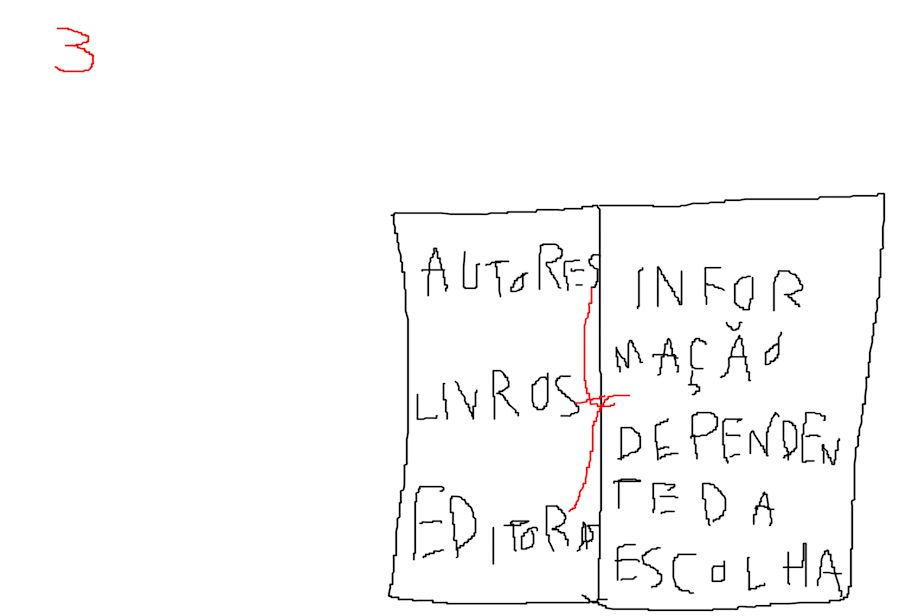 3
AUTORES
LIVROS
EDITORAS
INFOR
MAÇÃO
DEPENDEN
TE DA
ESCOLHA